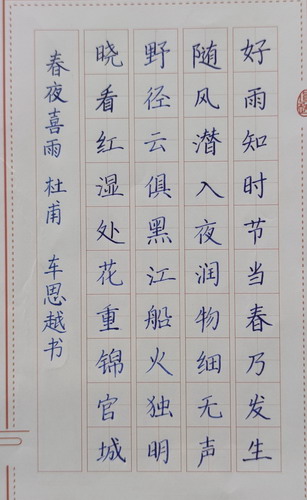 好雨知时节当春乃发生
随风潜入夜润物细无声
野径云俱黑江船火独明
晓看红湿处花重锦官城
春夜喜雨 杜甫 车思越书